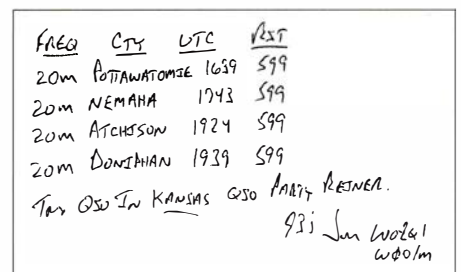 FREQ CTY UTC RST
20m POTTAWATOMIE 1639 599
20m NEMAHA 1743 599
20m ATCHISON 1924 599
20m DONIPHAN 1939 599
QSO IN KANSAS QSO PARTY REINER.